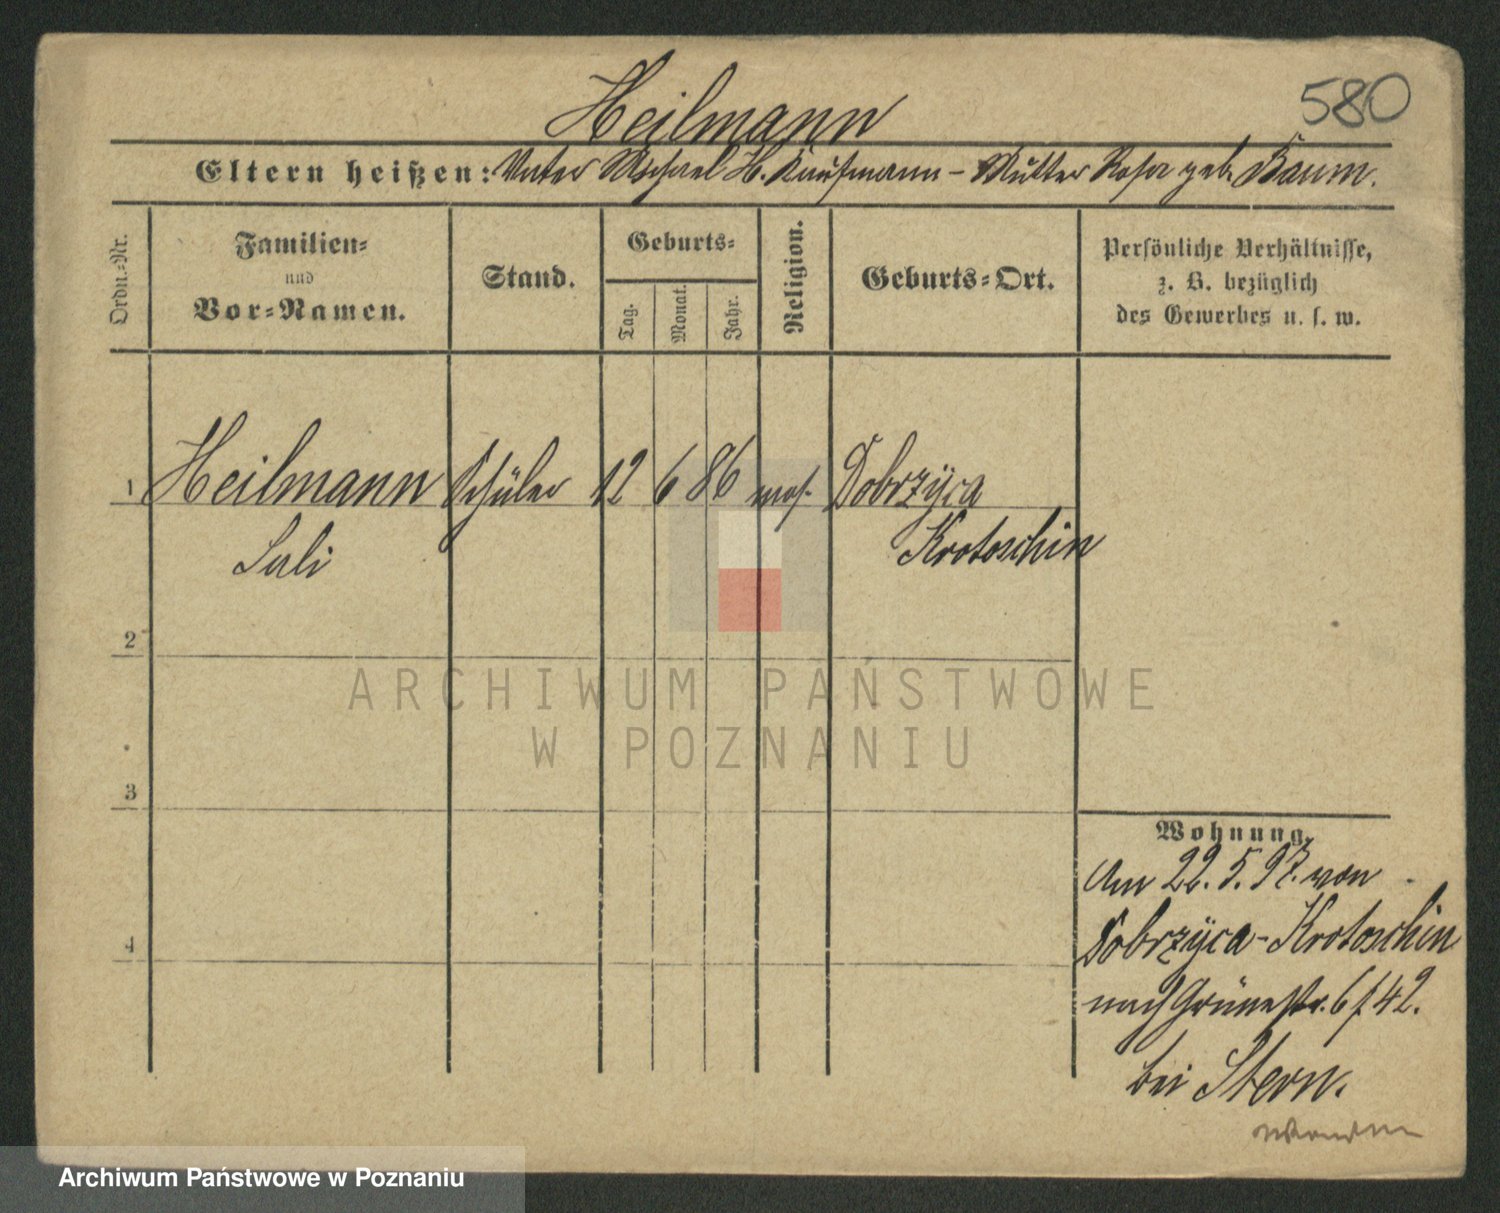 580
Heilmann
Eltern heißen: Vater Michael H. Kaufmann – Mutter Rosa geb. Baum.
Ordn.-Nr.
Familien- und Vor-Namen.
Stand.
Geburts-
Tag.
Monat.
Jahr.
Religion.
Geburts-Ort.
Persönliche Verhältnisse,
z. B. bezüglich
des Gewerbes u. s. w.
1 Heilmann Schüler 12 6 86 mos. Dobrzyca
Sali Krotoschin
2
3
4
Wohnung.
Am 22. 5. 97. von
Dobrzyca - Krotoschin
nach Grünestr. 6 / 42.
bei Stern.
ARCHIWUM PAŃSTWOWE
W POZNANIU
Archiwum Państwowe w Poznaniu